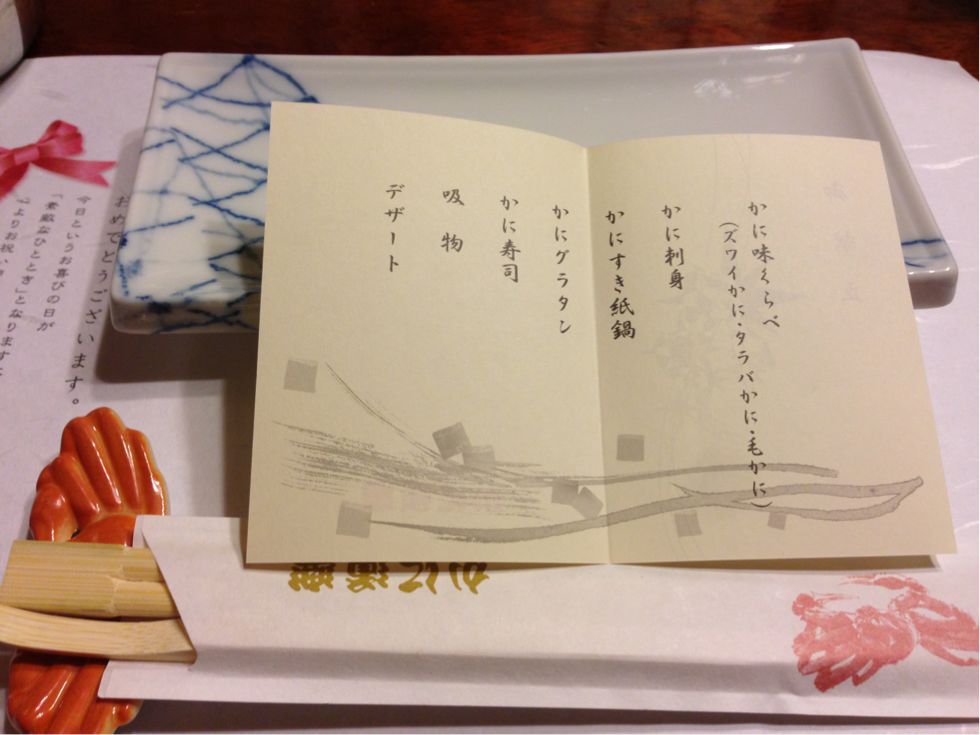 かに味くらべ
（ズワイかに・タラバかに・毛かに）
かに刺身
かにすき紙鍋
かにグラタン
かに寿司
吸物
デザート
おめでとうございます。
今日というお喜びの日が
「素敵なひととき」となります
心よりお祝い
かに道楽